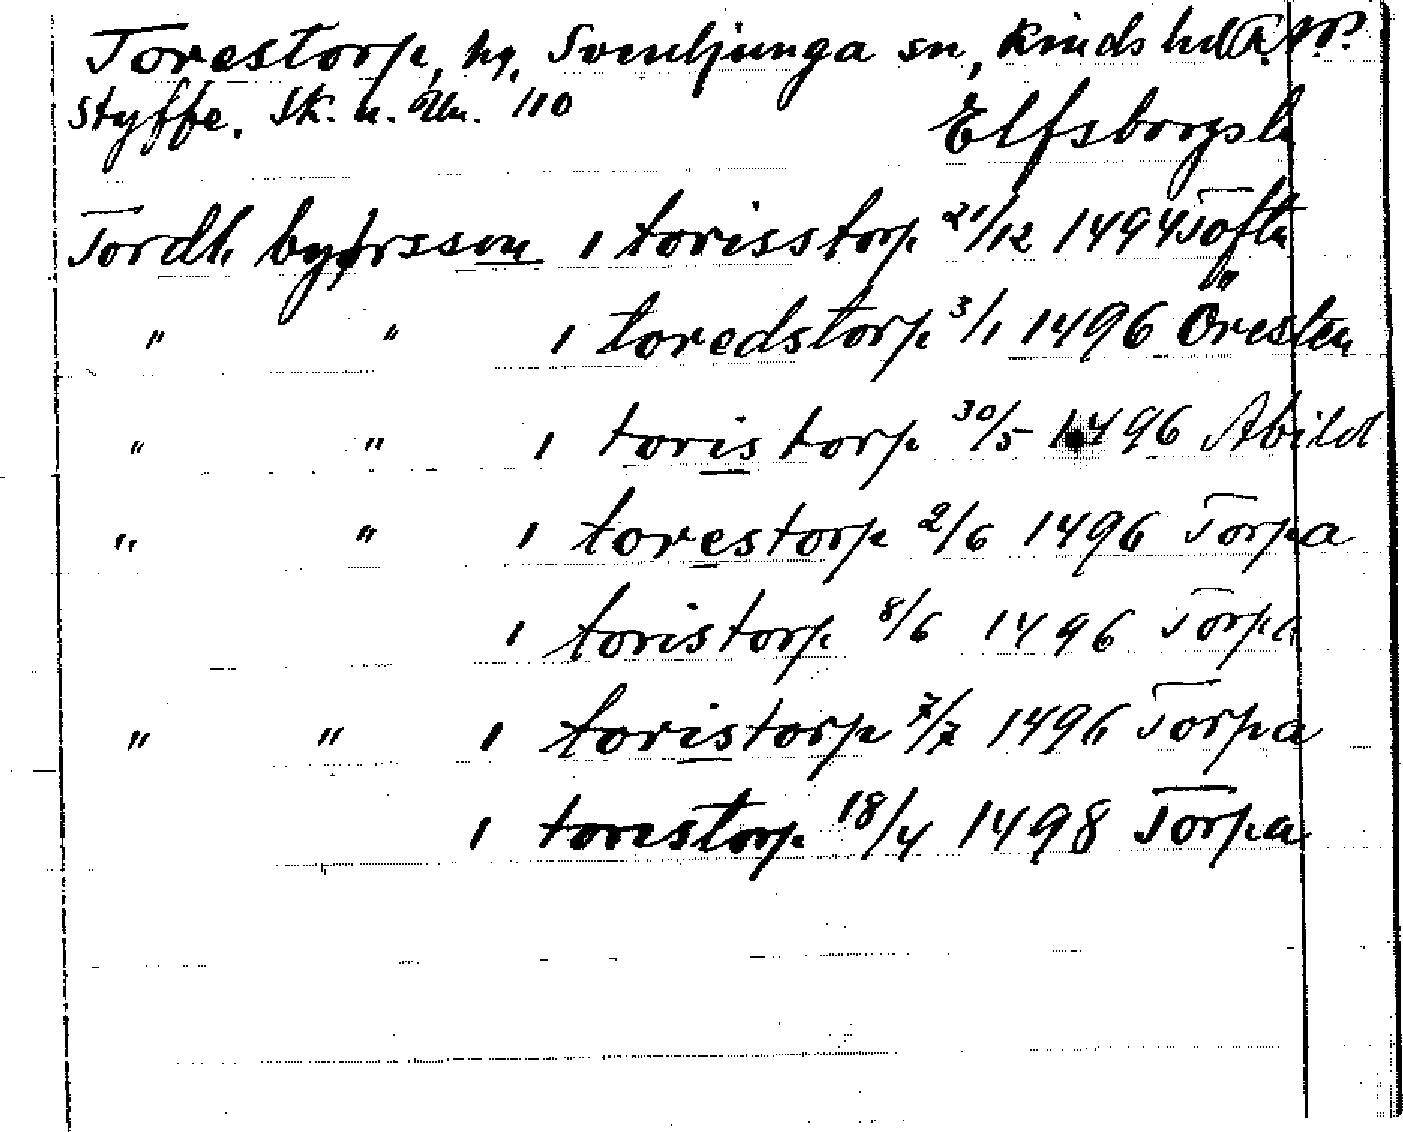 Torestorp, hg, Svenljunga sn, Kinds hd
Styffe. Sk. u. Un. 110
Elfsborgsl
Tordh byørsson i torisstorp 21/12 1494 Tofta
" " i toredstorp 3/1 1496 Öresten
" " i toristorp 30/5 1496 Abild
" " i torestorp 2/6 1496 Torpa
i toristorp 8/6 1496 Torpa
" " i toristorp 7/7 1496 Torpa
i torestorp 18/4 1498 Torpa